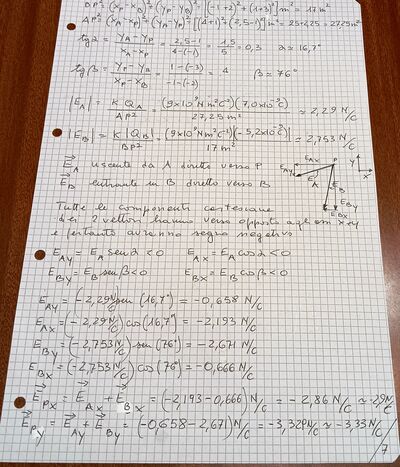 BP² = (xP - xB)² + (yP - yB)² = [(-1+2)² + (1+3)²] m² = 17 m²
AP² = (xA - xP)² + (yA - yP)² = [(4+1)² + (2,5-1)²] m² = 25+2,25 = 27,25 m²
tg α = (yA - yP)/(xA - xP) = (2,5-1)/(4-(-1)) = 1,5/5 = 0,3   α ≃ 16,7°
tg β = (yP - yB)/(xP - xB) = (1-(-3))/(-1-(-2)) = 4   β ≃ 76°
|EA| = K QA/AP² = (9×10⁹ Nm²C⁻²)(7,0×10⁻⁹C)/27,25 m² ≃ 2,29 N/C
|EB| = K |QB|/BP² = (9×10⁹ Nm²C⁻²)|-5,2×10⁻⁹C|/17 m² ≃ 2,753 N/C
EA uscente da A diretto verso P
EB entrante in B diretto verso B
EAX P
EAY EA
EB
EBY
EBX
Y
X
Tutte le componenti cartesiane
dei 2 vettori hanno verso opposto agli assi x e y
e pertanto avranno segno negativo
EAY = EA sen α < 0   EAX = EA cos α < 0
EBY = EB sen β < 0   EBX = EB cos β < 0
EAY = (-2,29 N/C) sen (16,7°) = -0,658 N/C
EAX = (-2,29 N/C) cos (16,7°) = -2,193 N/C
EBY = (-2,753 N/C) sen (76°) = -2,671 N/C
EBX = (-2,753 N/C) cos (76°) = -0,666 N/C
EPX = EAX + EBX = (-2,193 - 0,666) N/C = -2,86 N/C ≃ -2,9 N/C
EPY = EAY + EBY = (-0,658 - 2,671) N/C = -3,329 N/C ≃ -3,33 N/C
7